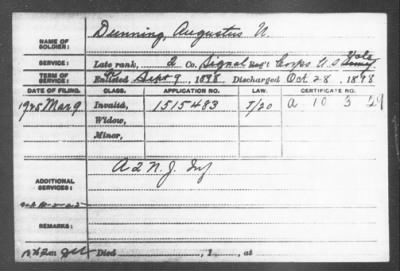 NAME OF SOLDIER: Dunning, Augustus N.
SERVICE: Late rank, Co. Signal Reg't Corps U.S. Vol. Army
TERM OF SERVICE: Enlisted Sept 9, 1898, Discharged Oct 28, 1898
DATE OF FILING. CLASS. APPLICATION NO. LAW. CERTIFICATE NO.
1925 Mar 9 Invalid, 1515483
Widow,
Minor,
ADDITIONAL SERVICES: A 2 N. J. Inf
REMARKS:
Died , 1 , at